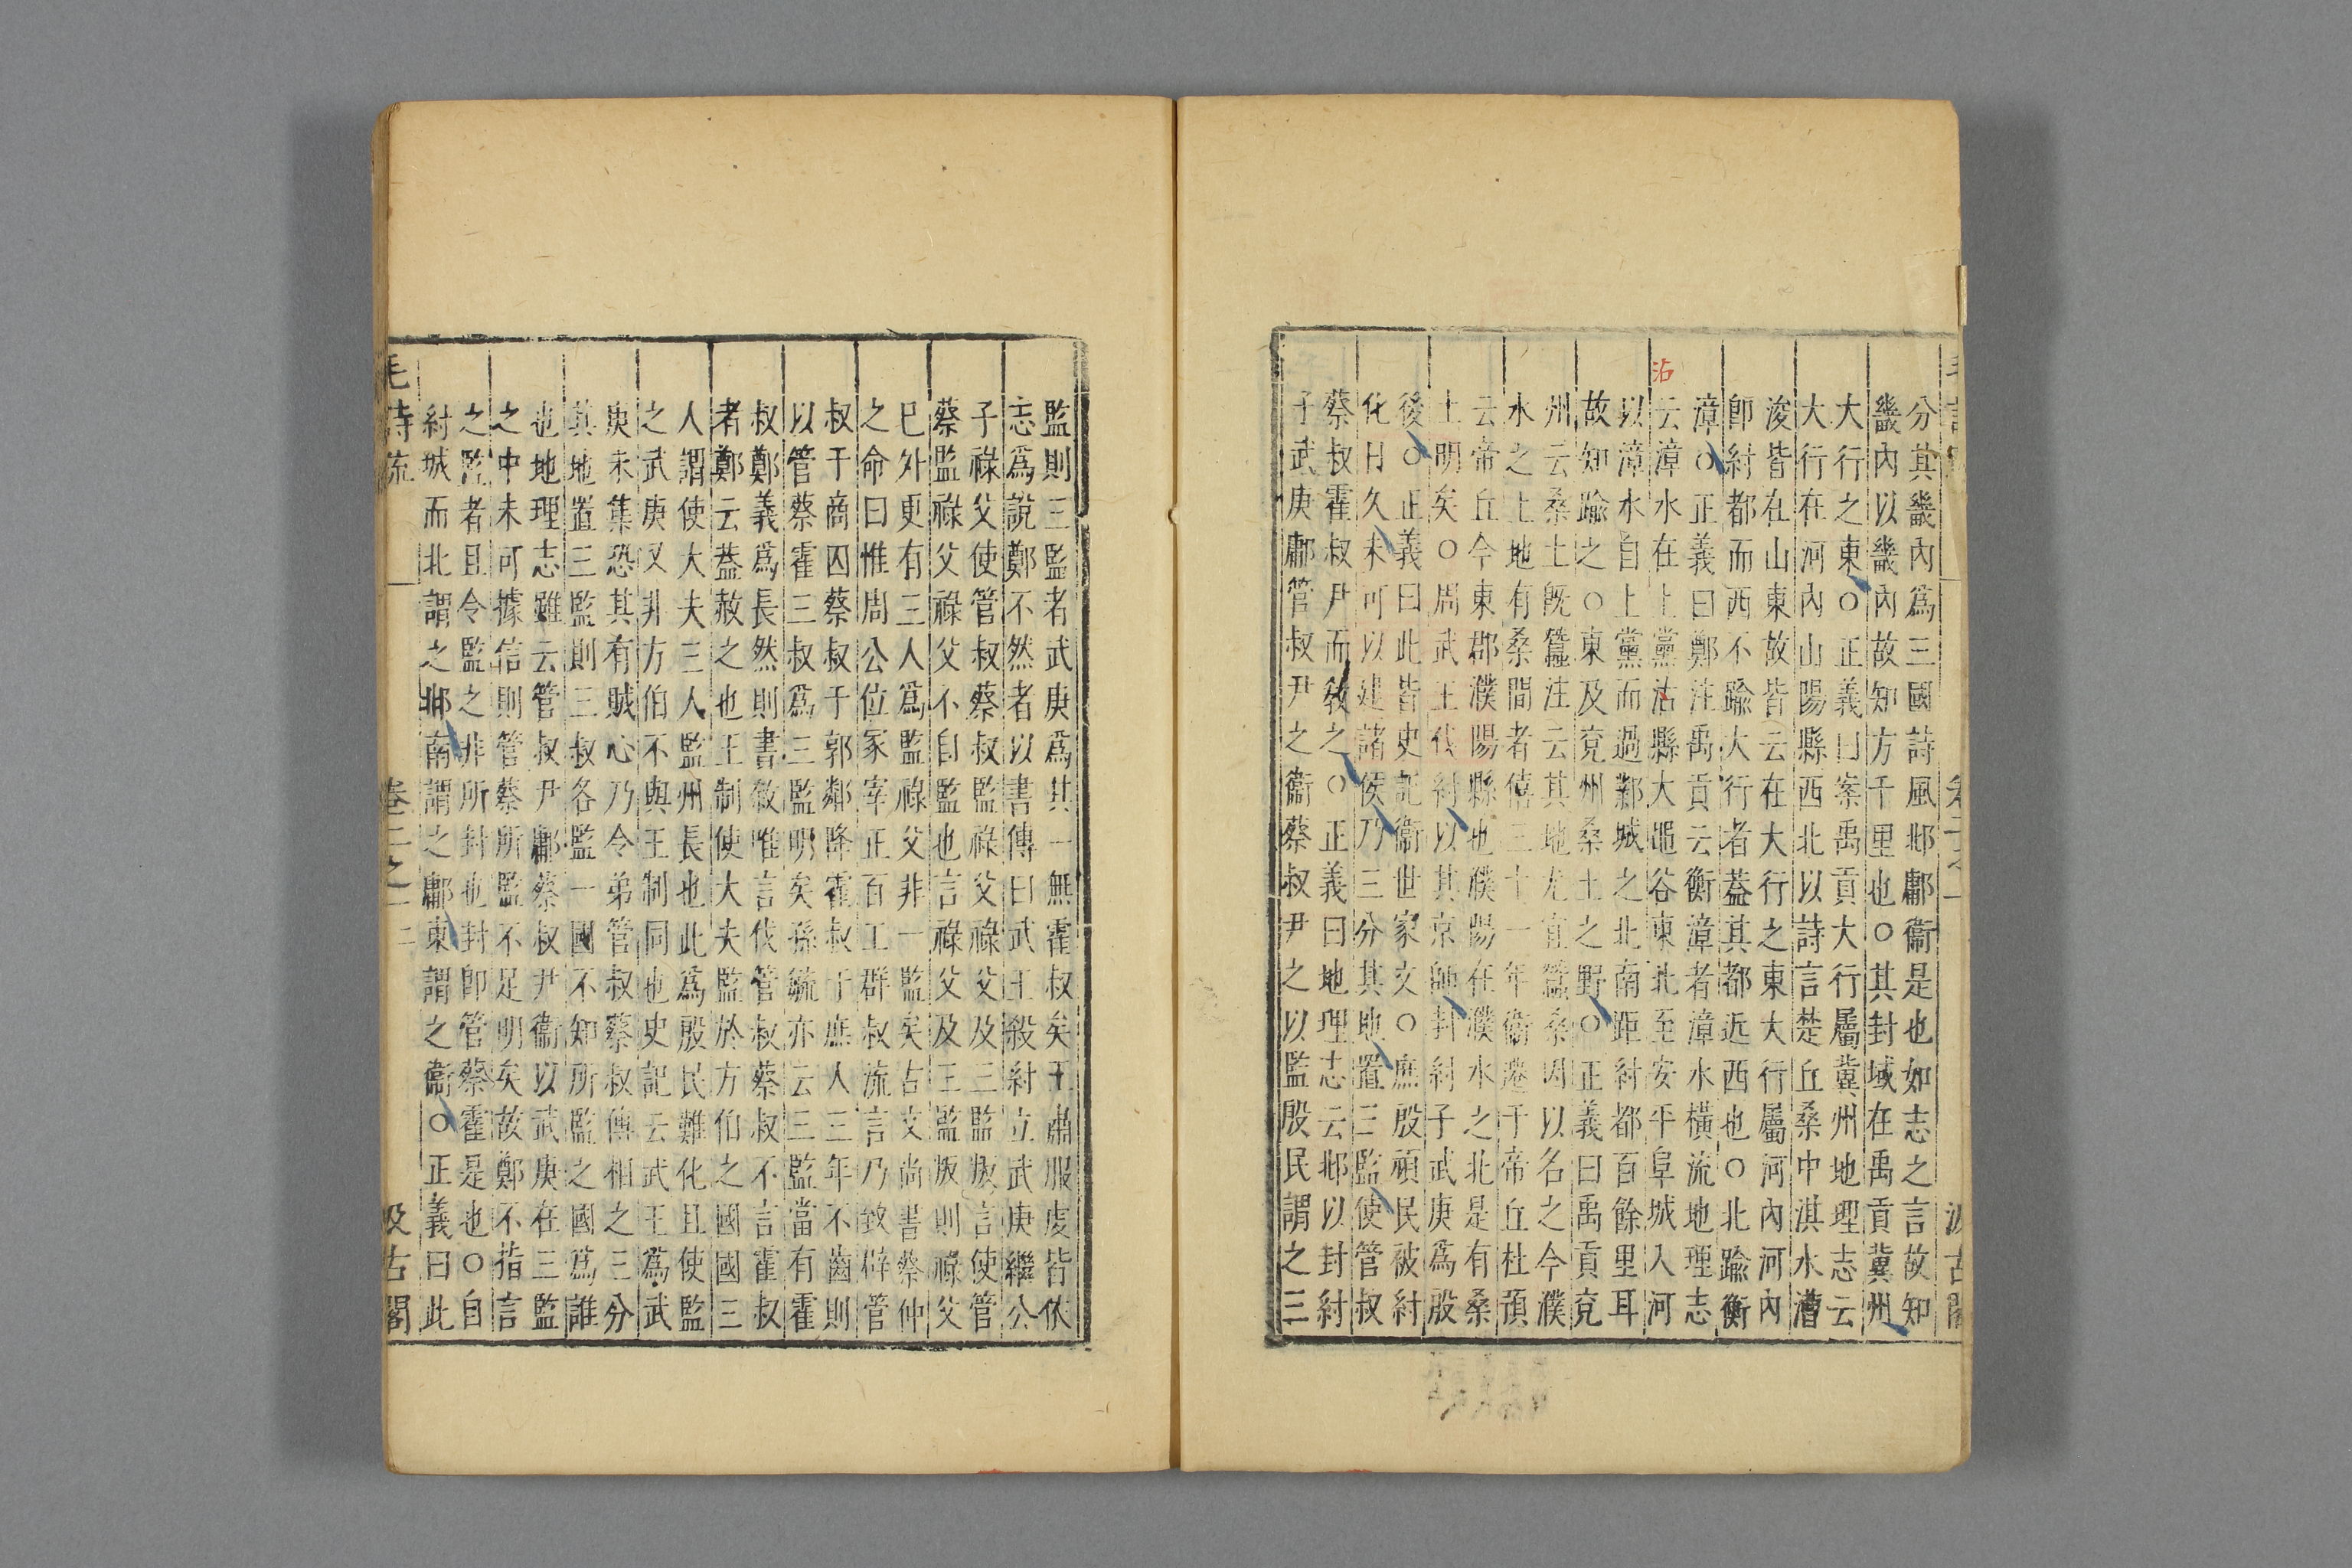 分其畿內爲三國詩風邶鄘衞是也如志之言故知
畿內以畿內故知方千里也○其封域在禹貢冀州
大行之東○正義曰案禹貢大行屬冀州地理志云
大行在河內山陽縣西北以詩言楚丘桑中淇水漕
浚皆在山東故皆云在大行之東大行屬河內河內
卽紂都而西不踰大行者蓋其都近西也○北踰衡
漳○正義曰鄭注禹貢云衡漳者漳水橫流地理志
云漳水在上黨沾縣大黽谷東北至安平阜城入河
沾
以漳水自上黨而過鄴城之北南距紂都百餘里耳
故知踰之○東及兗州桑土之野○正義曰禹貢兗
州云桑土既蠶注云其地尤宜蠶桑因以名之今濮
水之上地有桑間者僖三十一年衞遷于帝丘杜預
云帝丘今東郡濮陽縣也濮陽在濮水之北是有桑
土明矣○周武王伐紂以其京師封紂子武庚爲殷
後○正義曰此皆史記衞世家文○庶殷頑民被紂
化日久未可以建諸侯乃三分其地置三監使管叔
蔡叔霍叔尹而敎之○正義曰地理志云邶以封紂
子武庚鄘管叔尹之衞蔡叔尹之以監殷民謂之三
監則三監者武庚爲其一無霍叔矣王肅服虔皆依
志爲說鄭不然者以書傳曰武王殺紂立武庚繼公
子祿父使管叔蔡叔監祿父祿父及三監叛言使管
蔡監祿父祿父不自監也言祿父及三監叛則祿父
已外更有三人爲監祿父非一監矣古文尚書蔡仲
之命曰惟周公位冢宰正百工群叔流言乃致辟管
叔于商囚蔡叔于郭鄰降霍叔于庶人三年不齒則
以管蔡霍三叔爲三監明矣孫毓亦云三監當有霍
叔鄭義爲長然則書敘唯言伐管叔蔡叔不言霍叔
者鄭云蓋赦之也王制使大夫監於方伯之國國三
人謂使大夫三人監州長也此爲殷民難化且使監
之武庚又非方伯不與王制同也史記云武王爲武
庚未集恐其有賊心乃令弟管叔蔡叔傅相之三分
其地置三監則三叔各監一國不知所監之國爲誰
也地理志雖云管叔尹鄘蔡叔尹衞以武庚在三監
之中未可據信則管蔡所監不足明矣故鄭不指言
之監者且令監之非所封也封卽管蔡霍是也○自
紂城而北謂之邶南謂之鄘東謂之衞○正義曰此
毛詩疏　卷二之一　二　汲古閣